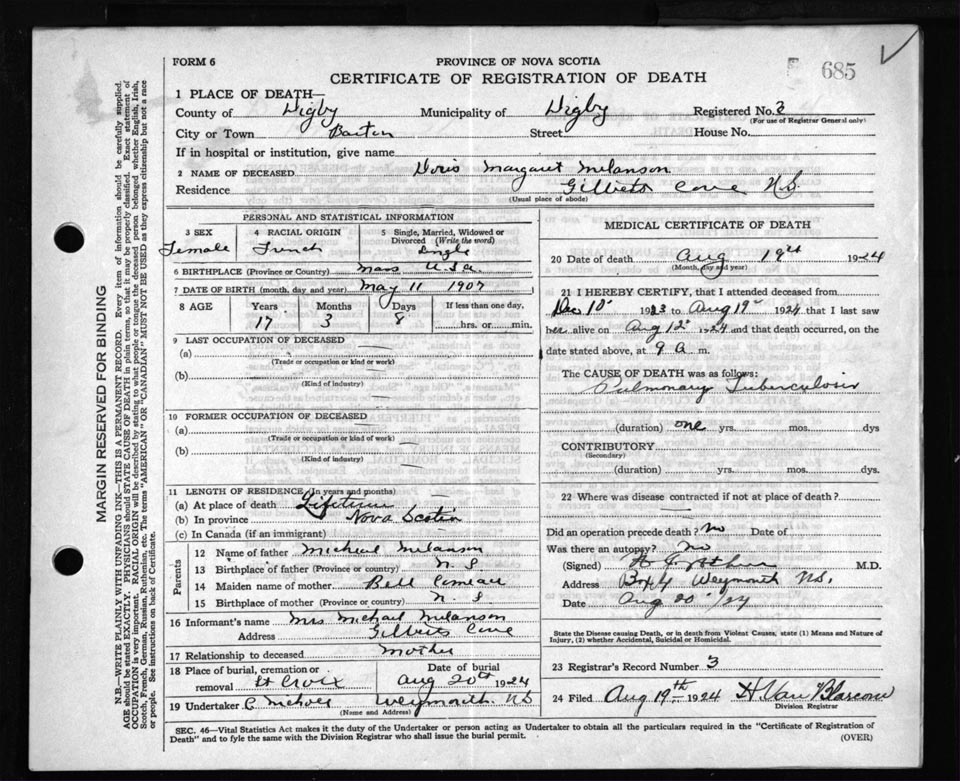 685
FORM 6
PROVINCE OF NOVA SCOTIA
CERTIFICATE OF REGISTRATION OF DEATH
1 PLACE OF DEATH—
County of Digby Municipality of Digby Registered No. 3
(For use of Registrar General only)
City or Town Barton Street House No.
If in hospital or institution, give name
2 NAME OF DECEASED Doris Margaret Melanson
Residence Gilberts Cove N.S.
(Usual place of abode)
PERSONAL AND STATISTICAL INFORMATION
3 SEX 4 RACIAL ORIGIN 5 Single, Married, Widowed or Divorced (Write the word)
Female French Single
6 BIRTHPLACE (Province or Country) Mass U.S.A.
7 DATE OF BIRTH (month, day and year) May 11 1907
8 AGE Years Months Days If less than one day,
17 3 8 hrs. or min.
9 LAST OCCUPATION OF DECEASED
(a)
(Trade or occupation or kind or work)
(b)
(Kind of industry)
10 FORMER OCCUPATION OF DECEASED
(a)
(Trade or occupation or kind of work)
(b)
(Kind of industry)
11 LENGTH OF RESIDENCE (In years and months)
(a) At place of death Lifetime
(b) In province Nova Scotia
(c) In Canada (if an immigrant)
Parents
12 Name of father Michael Melanson
13 Birthplace of father (Province or country) N. S
14 Maiden name of mother Bell Comeau
15 Birthplace of mother (Province or country) N. S
16 Informant's name Mrs Michael Melanson
Address Gilberts Cove
17 Relationship to deceased Mother
18 Place of burial, cremation or removal St Croix Date of burial Aug 20th 1924
19 Undertaker C Nichols Weymouth. NS
(Name and Address)
MEDICAL CERTIFICATE OF DEATH
20 Date of death Aug 19th 1924
(Month, day and year)
21 I HEREBY CERTIFY, that I attended deceased from
Dec 10 1923 to Aug 19 1924 that I last saw
her alive on Aug 12 1924 and that death occurred, on the
date stated above, at 9 a m.
The CAUSE OF DEATH was as follows:
Pulmonary Tuberculosis
(duration) one yrs. mos. dys
CONTRIBUTORY
(Secondary)
(duration) yrs. mos. dys.
22 Where was disease contracted if not at place of death?
Did an operation precede death? No Date of
Was there an autopsy? no
(Signed) M.D.
Address Box 4 Weymouth NS.
Date Aug 20 /24
State the Disease causing Death, or in death from Violent Causes, state (1) Means and Nature of
Injury, (2) whether Accidental, Suicidal or Homicidal.
23 Registrar's Record Number 3
24 Filed Aug 19th 1924 H Van Blarcom
Division Registrar
SEC. 46—Vital Statistics Act makes it the duty of the Undertaker or person acting as Undertaker to obtain all the particulars required in the "Certificate of Registration of
Death" and to fyle the same with the Division Registrar who shall issue the burial permit.
(OVER)
MARGIN RESERVED FOR BINDING
N.B.—WRITE PLAINLY WITH UNFADING INK—THIS IS A PERMANENT RECORD. Every item of information should be carefully supplied.
AGE should be stated EXACTLY. PHYSICIANS should STATE CAUSE OF DEATH in plain terms, so that it may be properly classified. Exact statement of
OCCUPATION is very important. RACIAL ORIGIN will be described by stating to what people or tongue the deceased person belonged whether English, Irish,
Scotch, French, German, Russian, Ruthenian, etc. The terms "AMERICAN" OR "CANADIAN" MUST NOT BE USED as they express citizenship but not a race
or people. See instructions on back of Certificate.